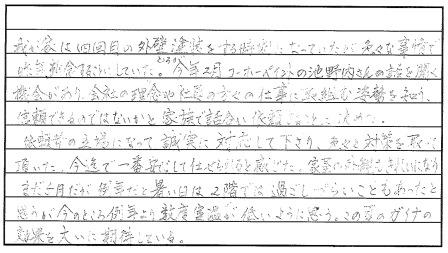 我が家は四回目の外壁塗装をする時期になっていたが色々な事情で
していた。今年2月コーホーペイントの池野内さんの話を聞く
機会があり、会社の理念や社員の方々の仕事に取組む姿勢を知り、
信頼できるのではないかと家族で話合い依頼することに決めた。
依頼者の立場になって誠実に対応して下さり、色々と対策を取って
頂いた。今迄で一番安心して任せられると感じた。家の外観もきれいになり
まだ六月だが例年だと暑い日は2階では過ごしづらいこともあったと
思うが今のところ例年より数度室温が低いように思う。この夏のガイナの
効果を大いに期待している。